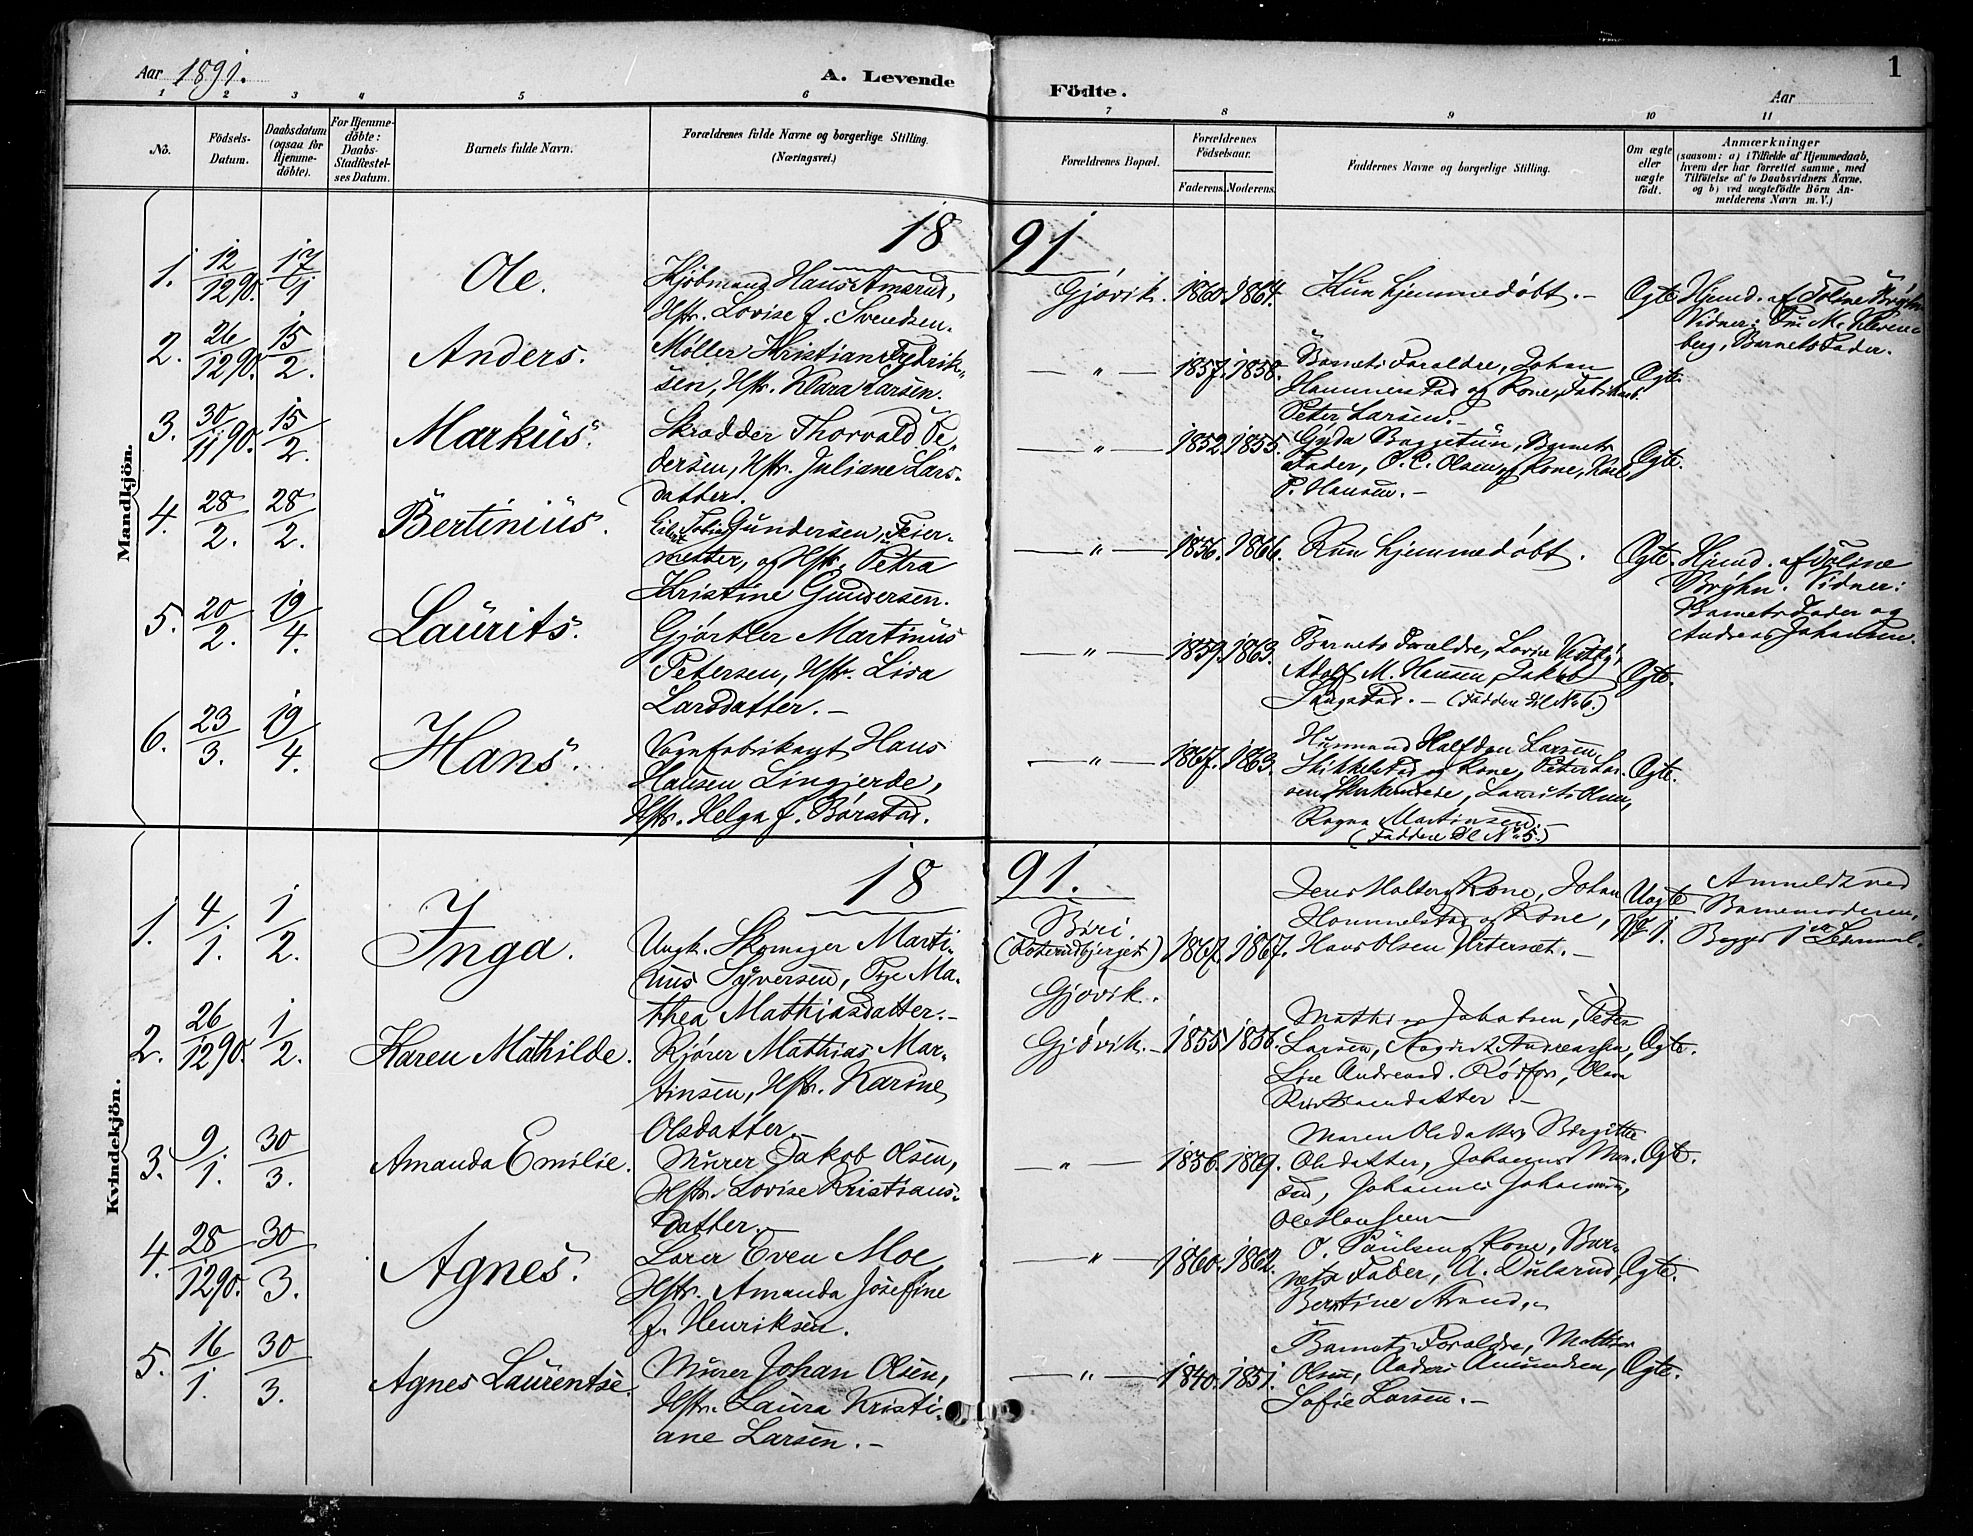 Aar 1891.
A. Levende
Födte.
Aar
1
1 2 3 4 5 6 7 8 9 10 11
No.
Födsels-
Datum.
Daabsdatum
(ogsaa for
Hjemme-
döbte).
For Hjemme-
döbte:
Daabs-
Stadfæstel-
ses Datum.
Barnets fulde Navn.
Forældrenes fulde Navne og borgerlige Stilling.
(Næringsvei.)
Forældrenes Bopæl.
Forældrenes
Födselsaar.
Faderens. Moderens.
Faddernes Navne og borgerlige Stilling.
Om ægte
eller
uægte
födt.
Anmærkninger
(saasom: a) i Tilfælde af Hjemmedaab,
hvem der har forrettet samme, med
Tilföielse af to Daabsvidners Navne,
og b) ved uægtefödte Börn An-
melderens Navn m. V.)
Mandkjön.
18 91
1. 12/12 90. 17/1 Ole.
Kjøbmand Hans Amsrud,
Hstr. Lovise f. Svendsen.
Gjøvik. 1860. 1864. Kun hjemmedøbt. — Ægte.
Hjmd. af Toline Brøhn
Vidner: M. Kleven-
berg, Barnets Fader.
2. 26/12 90. 15/2. Anders.
Møller Kristian Fredrik-
sen, Hstr. Klara Larsen.
— " — 1857. 1858. Barnets Foraldre, Johan
Hammerstad og Kone, Fabrikarb.
Peter Larsen. — Ægte.
3. 30/11 90. 15/2. Markus.
Skradder Thorvald Pe-
dersen, Hstr. Juliane Lars-
datter.
" 1852. 1855. Gyda Baggetun, Barnets
Fader, O. C. Olsen og Kone, Karl
P. Hansen. — Ægte.
4. 28/2. 28/2. Bertinius.
Tobias Gundersen, Feier-
mester, og Hstr. Petra
Kristine Gundersen.
— " — 1856. 1866. Kun hjemmedøbt. Ægte.
Hjmd. af Toline
Brøhn. Vidner:
Barnets Fader og
Andreas Johansen.
5. 20/2. 19/4. Laurits.
Gjørtler Martinus
Petersen, Hstr. Lisa
Larsdatter. —
— " — 1859. 1863. Barnets Foraldre, Lovise Vestby,
Adolf M. Hansen, Jakob
Haugstad. — (Faddere til No 6.) Ægte.
6. 23/3. 19/4. Hans.
Vognfabrikant Hans
Hansen Lingjerde,
Hstr. Helga f. Børstad.
— " — 1867. 1863. Husmand Halfdan Larsen
og Kone, Peter Lar-
sen, Laurits Olsen,
Ragna Martinsen. —
(Faddere til No 5.) Ægte.
Kvindekjön.
18 91.
1. 4/1. 1/2. Inga.
Ungk. Skomager Marti-
nus Syversen, Pige Ma-
thea Mathiasdatter. —
Biri.
Gjøvik.
1867. 1867. Jens Holberg Kone, Johan
Hammelstad og Kone,
Hans Olsen Urterset. —
Uægte
No 1.
Anmeldt ved
Barnemoderen,
Begges 1ste Leiermaal.
2. 26/12 90. 1/2. Karen Mathilde.
Kjører Mathias Mar-
tinsen, Hstr. Karine
Olsdatter. —
Gjøvik. — 1855. 1856. Mathias Jakobsen, Peder
Larsen, August Andreassen,
Lise Andreasd. Rødfos, Olava
Kristiansdatter. — Ægte.
3. 9/1. 30/3. Amanda Emilie.
Murer Jakob Olsen,
Hstr. Lovise Kristians-
datter. —
— " — 1856. 1869. Maren Olsdatter, Birgitte
Olsdatter, Johannes Mu-
stad, Johannes Johannesen,
Ole Hansen Ægte.
4. 28/12 90. 30/3. Agnes.
Lærer Even Moe
Hstr. Amanda Josefine
f. Henriksen.
— " — 1860. 1862. O. Paulsen og Kone, Bar-
nets Fader, A. Dulsrud,
Bertine Strand. — Ægte.
5. 16/1. 30/3. Agnes Laurentse.
Murer Johan Olsen,
Hstr. Laura Kristi-
ane Larsen. —
— " — 1840. 1851. Barnets Foraldre, Mathias
Olsen, Anders Amundsen,
Sofie Larsen. — Ægte.